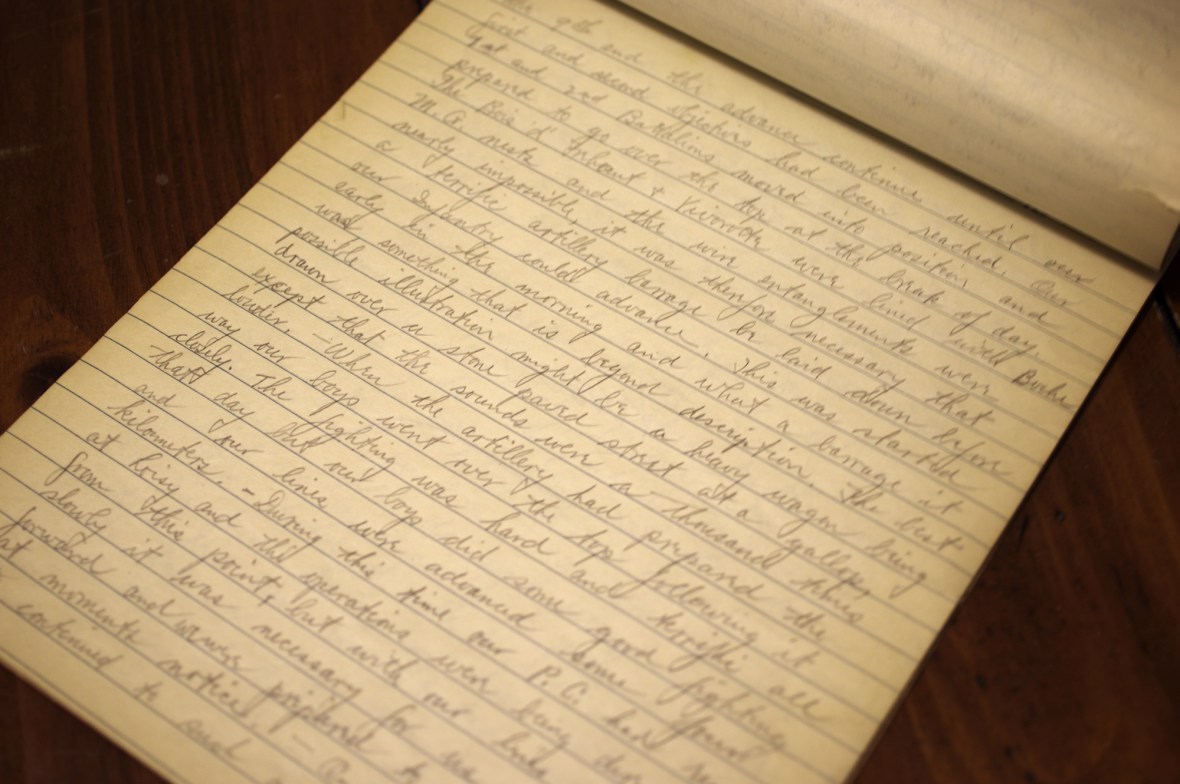 the advance continue until our
first and second objectives had been reached. Our
1st and 2nd Battlions moved into position, and
prepared to go over the top at the break of day.
The Bois d' and were lined with Boche
M.G. nests and the wire entanglements were
nearly impossible, it was therefore necessary that
a terrific artillery barrage be laid down before
our Infantry could advance. This was started
early in the morning and what a barrage it
was something that is beyond description. The best
possible illustration might be a heavy wagon being
drawn over a stone paved street at a gallop,
except that the sounds were a thousand times
louder. - When the artillery had prepared the
way our boys went over the top following it
closely. The fighting was hard and terrific all
that day but our boys did some good fighting
and our lines were advanced some four
kilometers. - During this time our P.C. was
atRoisy and the operations were being
from this point, but with our
slowly it was necessary for us to
forward and always prepared to
moments notice -
continued to